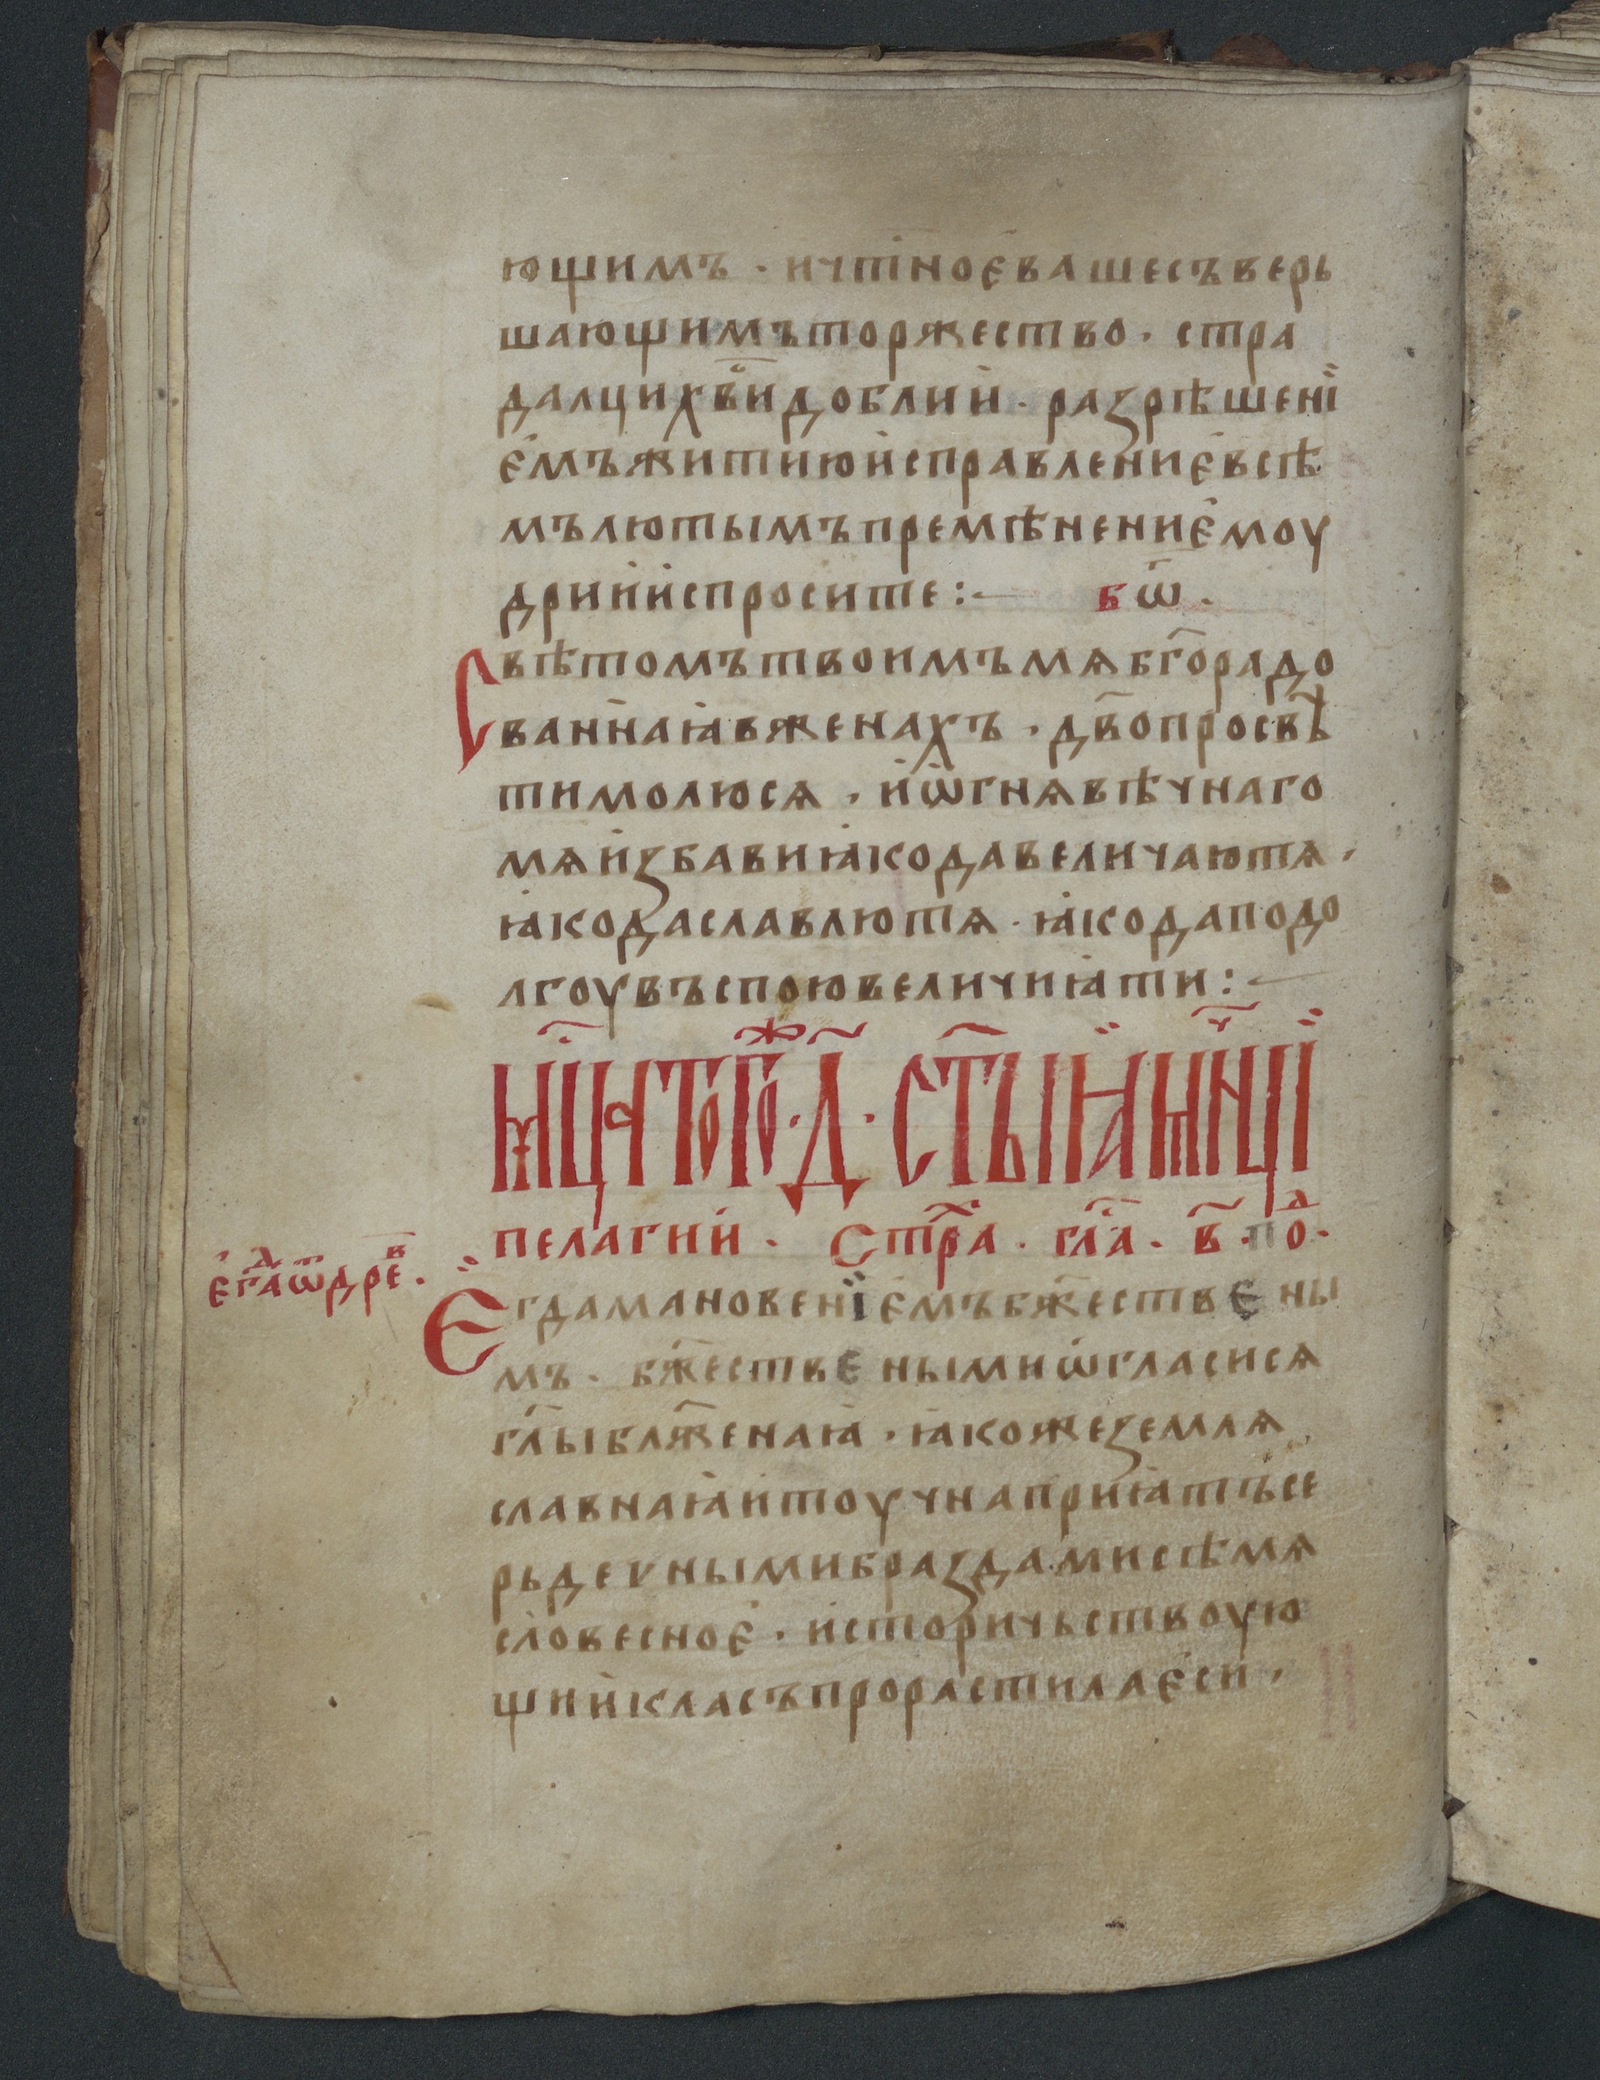 ющимъ · ичт҃ноеваше съверь
шающимъторжество · стра
далцихв҃идоблии · разрѣшенї
емъжитиюисправлениевсѣ
мълютымъпремѣнениемоу
дрииспросите :— бѿ ·
Свѣтомътвоимъмѧбг҃орадо
ваннаꙗвженахъ · дв҃опросвѣ
тимолюсѧ · иѿгнѧвѣчнаго
мѧизбавиꙗкодавеличаютѧ ·
ꙗкодаславлютѧ · ꙗкодаподо
лгоувъспоювеличиꙗти :—
мц҃атогⷤо · д҃ · ст҃ыꙗмч҃нци
пелагии · стр҃ха · гл҃а · в҃ · поⷣ ·
егⷣаѿдреⷡ ·
Егдамановенїемъбж҃ествены
мъ · бж҃ественымиѡгласисѧ
гл҃ыблж҃енаꙗ · ꙗкожеземлѧ
славнаꙗитоучнаприꙗтъсе
рьдечнымибраздамисѣмѧ
словесное · историчьствоую
щииклас​ъпрорастилаеси ·